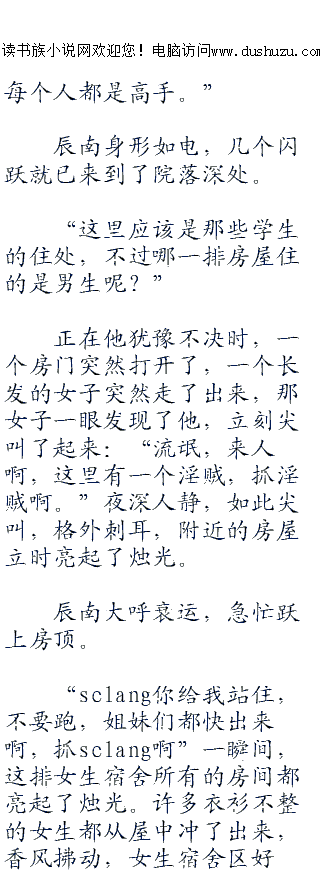 读书族小说网欢迎您！电脑访问www.dushuzu.com
每个人都是高手。”
辰南身形如电，几个闪
跃就已来到了院落深处。
“这里应该是那些学生
的住处，不过哪一排房屋住
的是男生呢？”
正在他犹豫不决时，一
个房门突然打开了，一个长
发的女子突然走了出来，那
女子一眼发现了他，立刻尖
叫了起来：“流氓，来人
啊，这里有一个淫贼，抓淫
贼啊。”夜深人静，如此尖
叫，格外刺耳，附近的房屋
立时亮起了烛光。
辰南大呼衰运，急忙跃
上房顶。
“sclang你给我站住，
不要跑，姐妹们都快出来
啊，抓sclang啊”一瞬间，
这排女生宿舍所有的房间都
亮起了烛光。许多衣衫不整
的女生都从屋中冲了出来，
香风拂动，女生宿舍区好